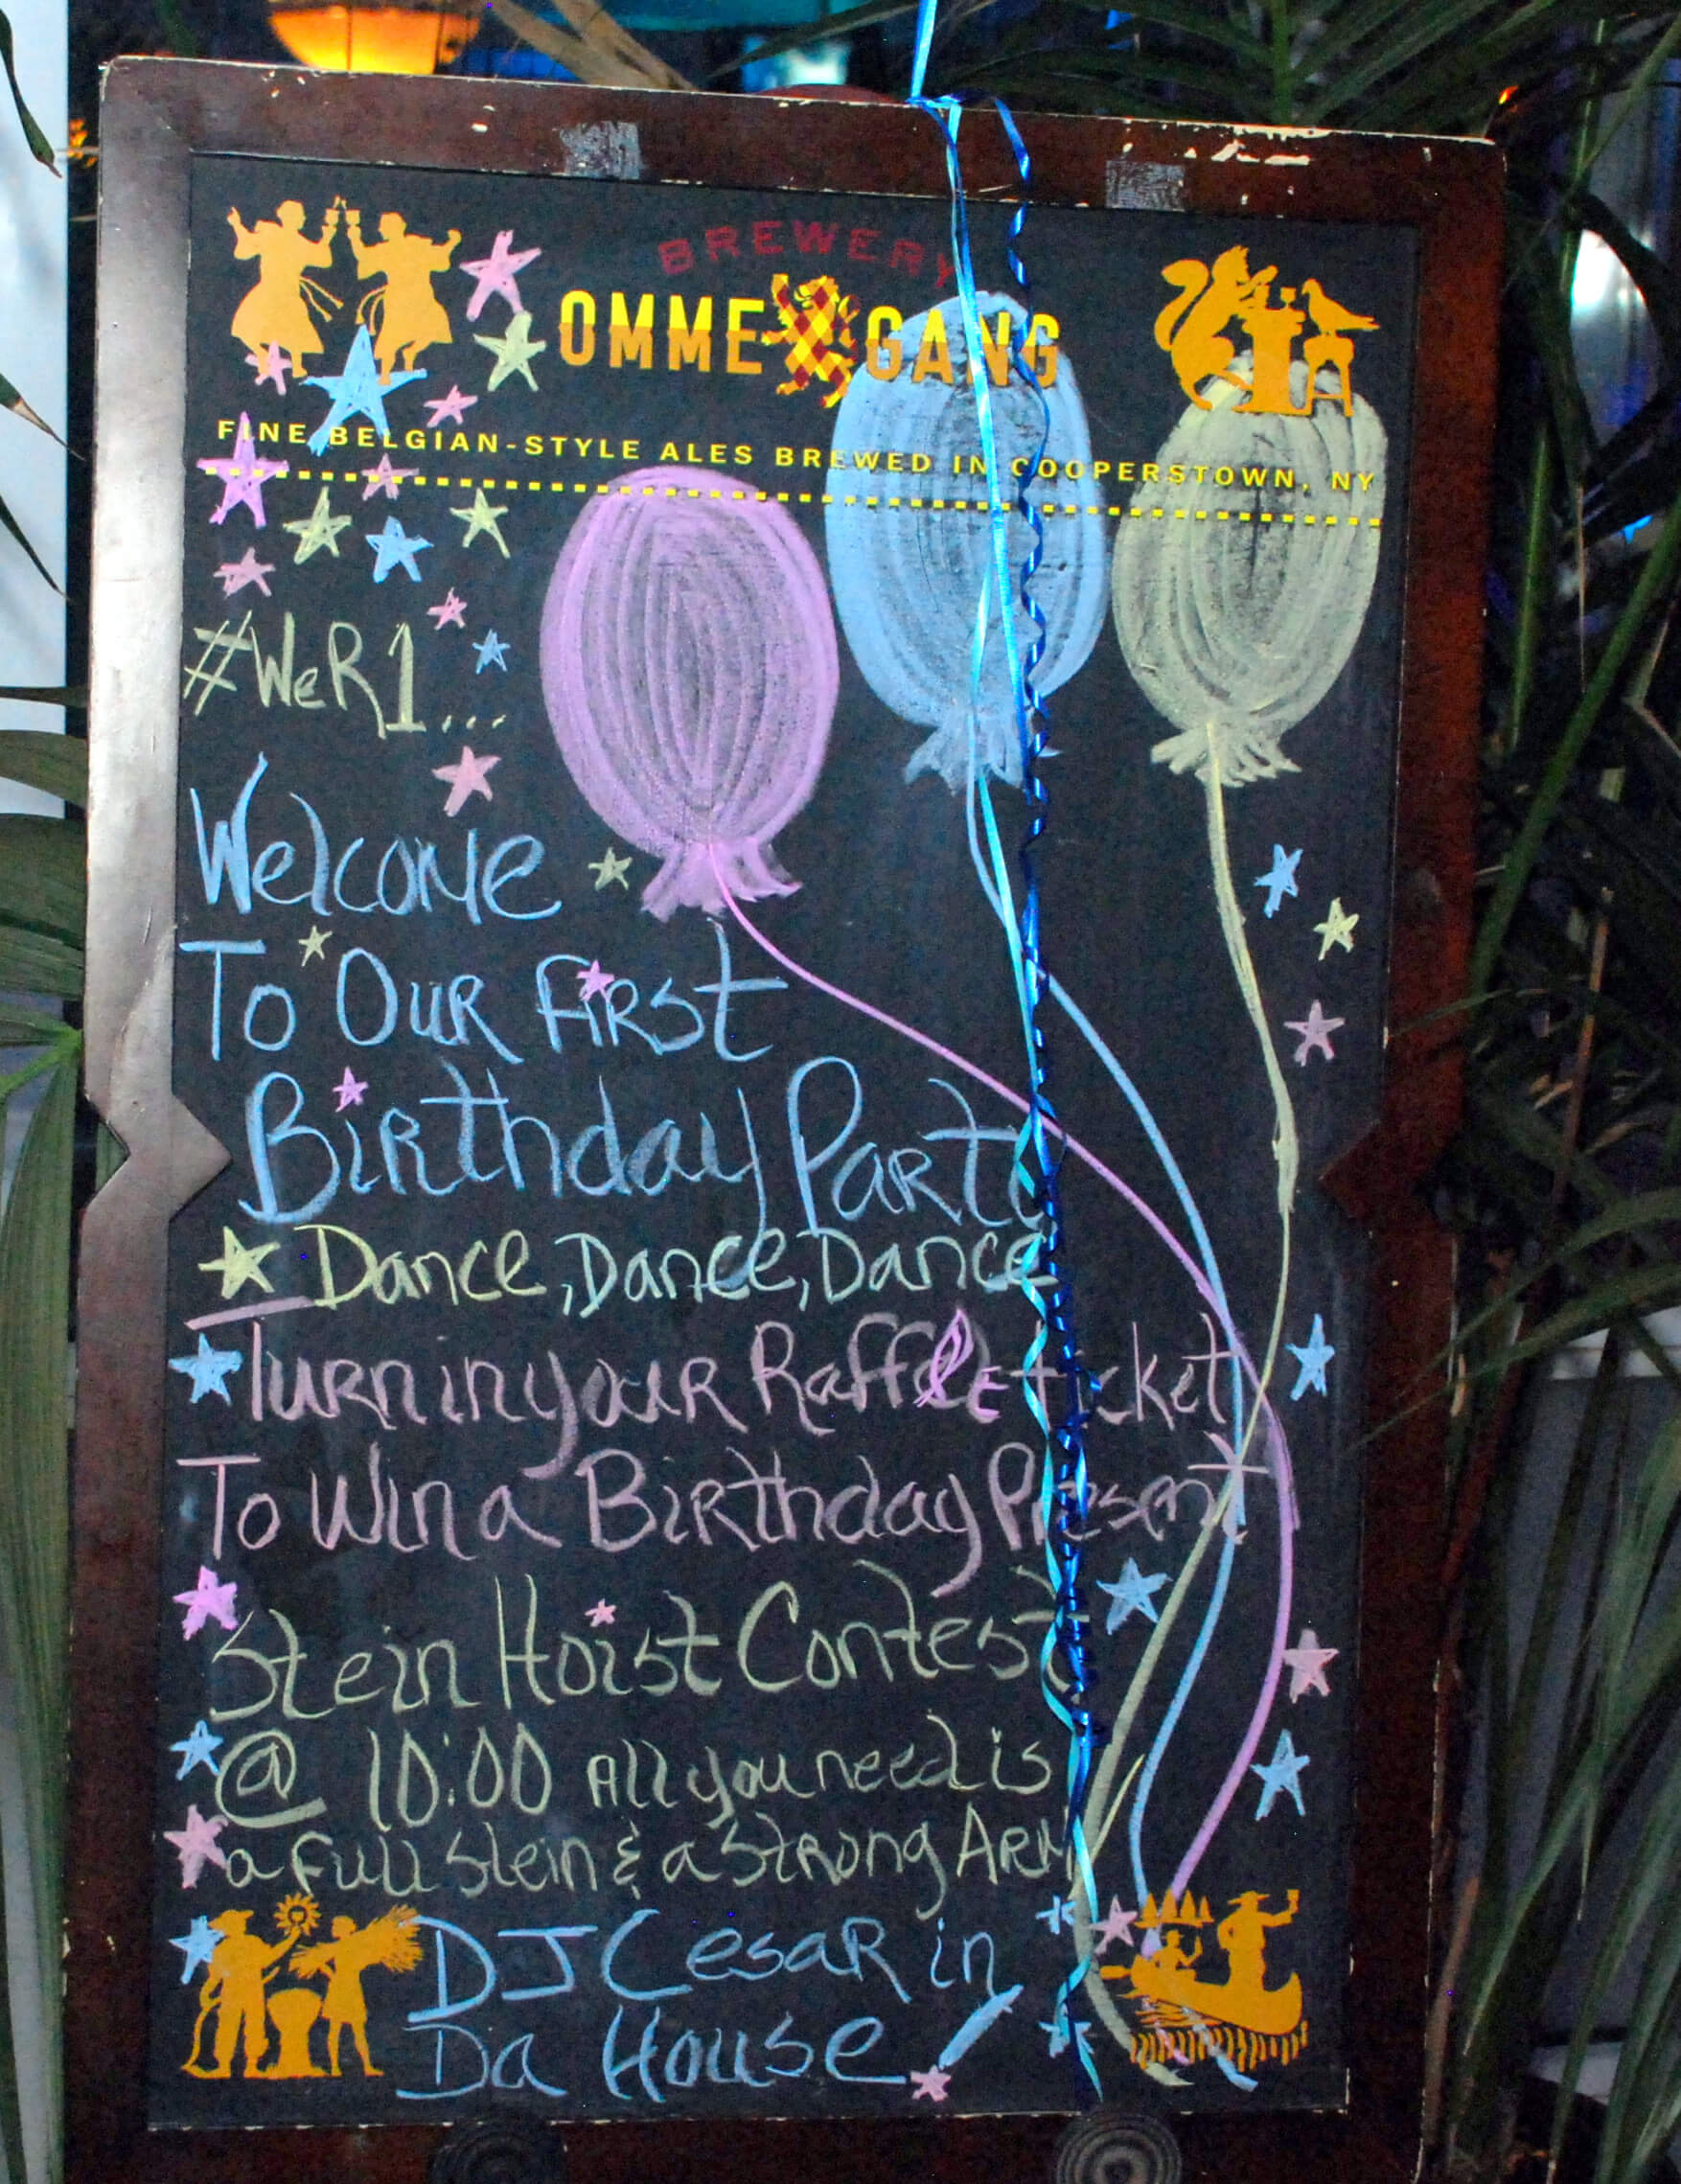 BREWERY
OMMEGANG
FINE BELGIAN-STYLE ALES BREWED IN COOPERSTOWN, NY
#WeR1...
Welcome
To Our First
Birthday Party
Dance, Dance, Dance
Turn in your Raffle ticket
To Win a Birthday Present
Stein Hoist Contest
@ 10:00 All you need is
a Full Stein & a Strong Arm
DJ Cesar in
Da House!